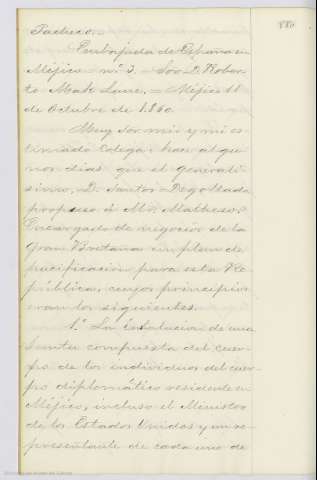 886
Pacheco.
Embajada de España en
Méjico = nº 3. = Sor. D. Rober-
to Mak Lane. = Méjico 11
de Octubre de 1860
Muy Sor. mio y mi es-
timado colega: hace algu-
nos dias que el generalí-
simo, D. Santos Degollado
propuso á Mr. Mathews
Encargado de negocios de la
Gran Bretaña un plan de
pacificacion para esta Re
pública, cuyos principios
eran los siguientes.
1º La instalacion de una
junta compuesta del cuer-
po de los individuos del cuer-
po diplomático residente en
Méjico, incluso el Ministro
de los Estados Unidos y un re-
presentante de cada uno de